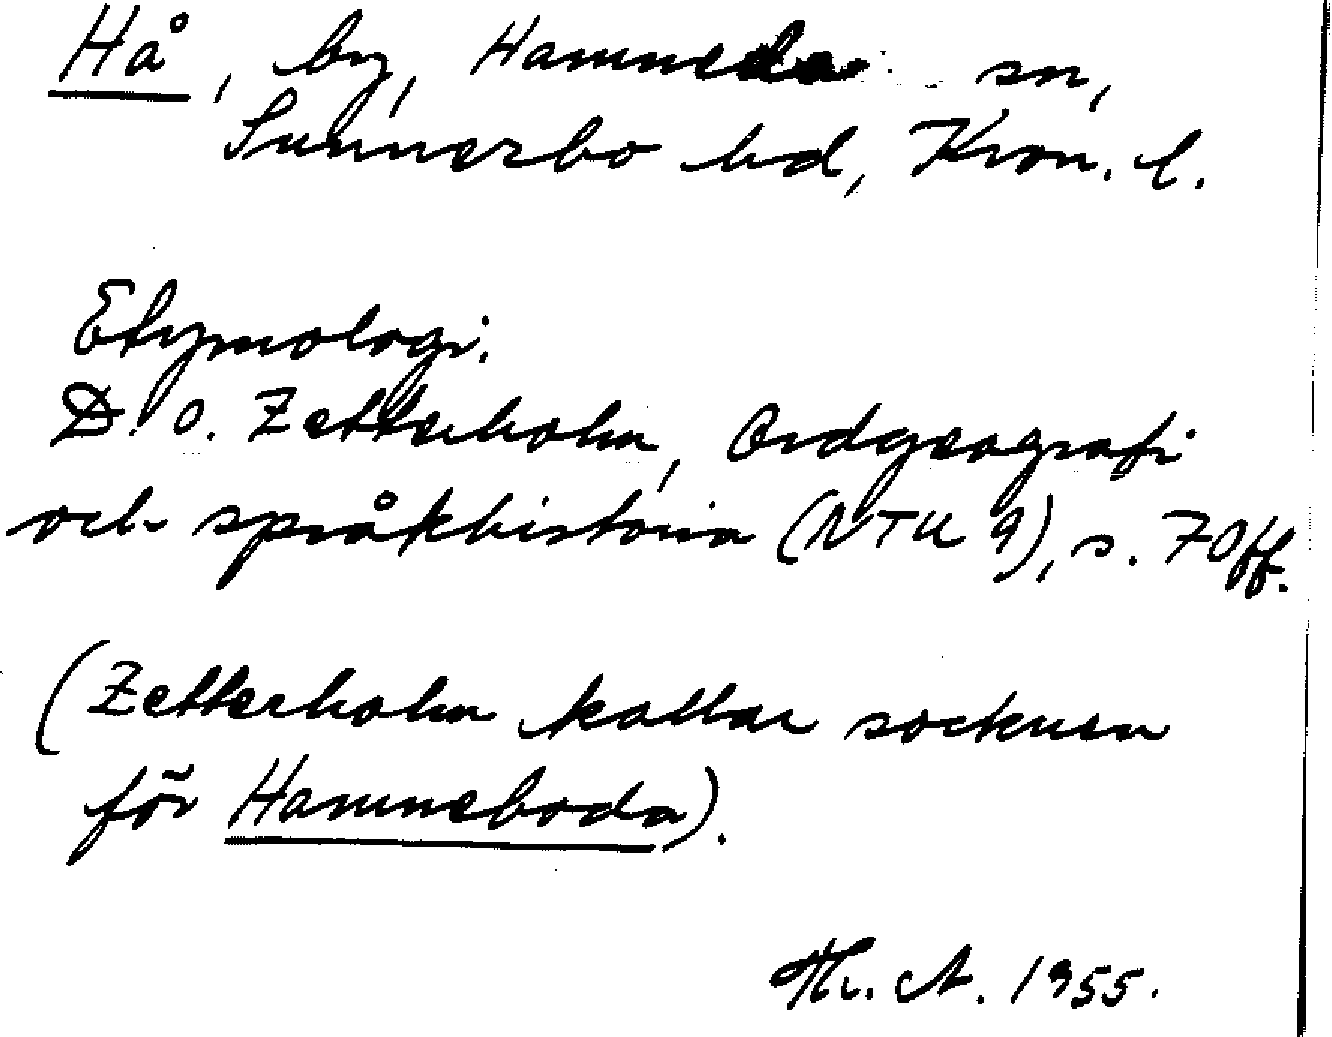 Hå, by, Hamneda sn,
Sunnerbo hd, Kron. l.
Etymologi.
D. O. Zetterholm, Ordgeografi
och språkhistoria (NTU 9), s. 70ff.
(Zetterholm kallar socknen
för Hamneboda).
Th. A. 1955.